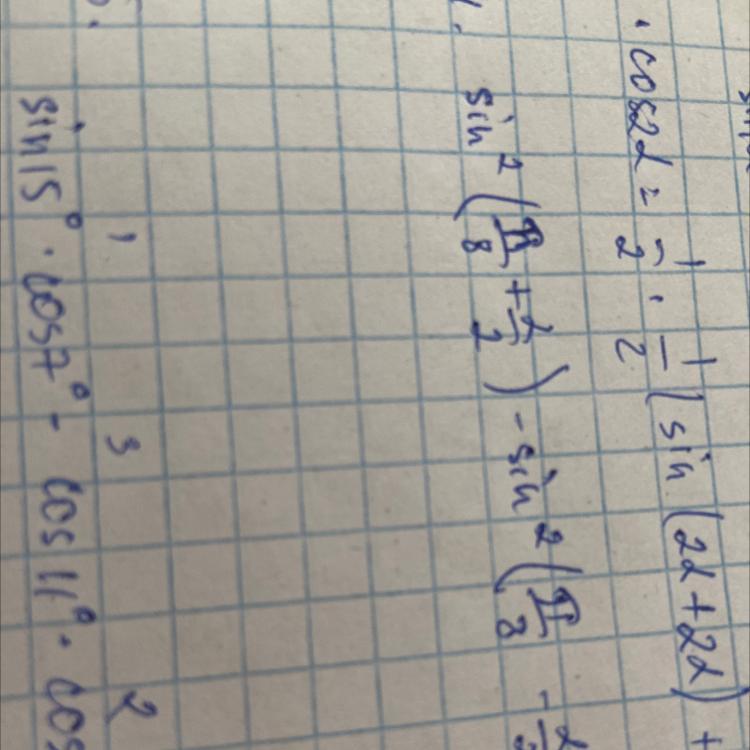 · cos2α = 1/2 · 1/2 (sin(2α + 2α) +
sin²(π/8 + α/2) - sin²(π/8 - α/
1 3 2
sin15° · cos7° - cos11° · cos